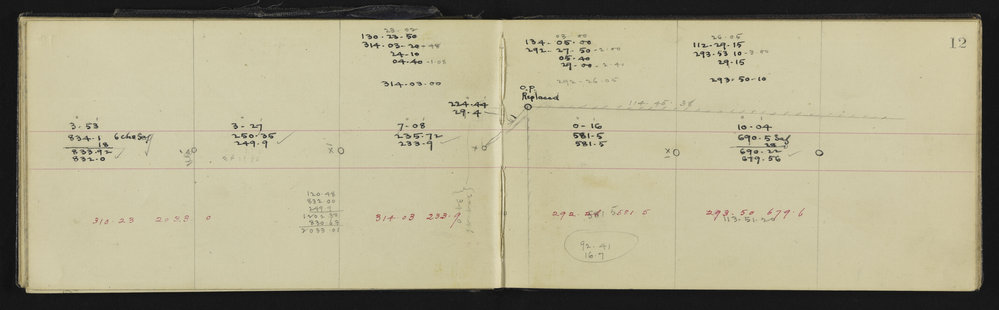 12
23-02
130-23-50
314-03-20-48
24-10
04-40-1.08
314-03-00
224.44
29.4
3-53
834.1 6 chs Sag
18
833.92
832.0
3-27
250.35
249.9
7-08
235.72
233.9
310.23 2033.0
120.48
832.00
249.9
1202.38
830.63
2033.01
314-03 233.9
03-00
134-05-00
292-27-50-2.00
05-40
29-00-2.40
292-26-05
O.P.
Replaced
114-45-38
26-05
112-29-15
293-53 10-3.00
29-15
293-50-10
0-16
581.5
581.5
10-04
690.5 Sag
28
690.22
679.56
292 581.5
92.41
16.7
293.50 679.6
113-51-20